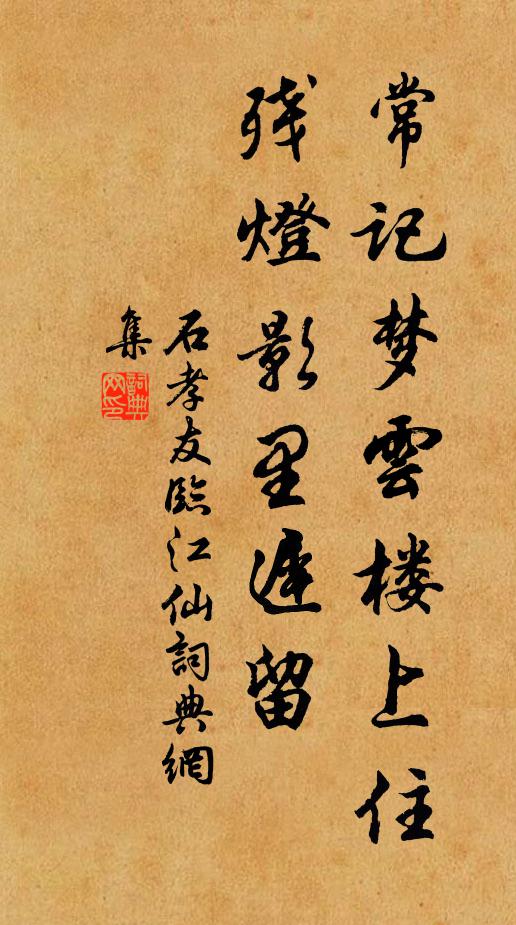 常记梦雲楼上住
残燈影里遲留
石孝友臨江仙詞典網
集
詞典網印